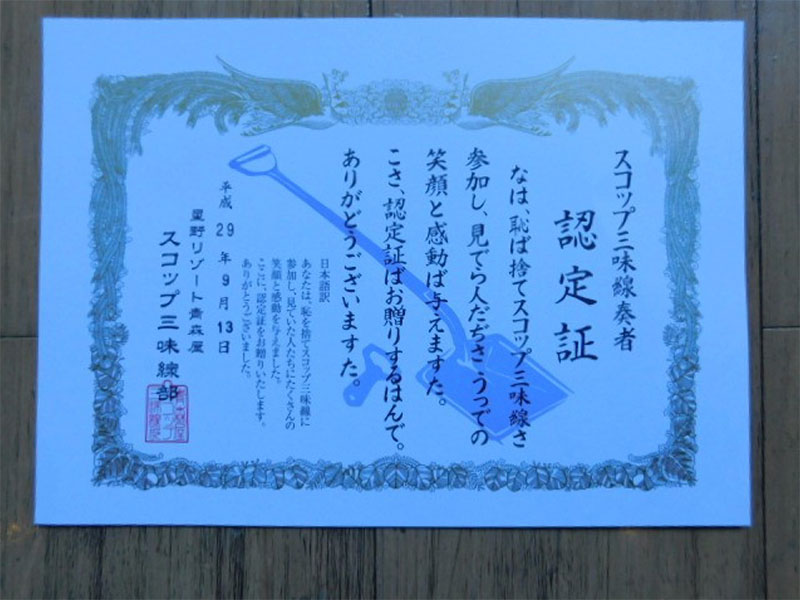 スコップ三味線奏者
認定証
なは、恥ば捨てスコップ三味線さ
参加し、見でら人だぢさ うっでの
笑顔と感動ば与えますた。
こさ、認定証ばお贈りするはんで。
ありがどうございますた。
日本語訳
あなたは、恥を捨てスコップ三味線に
参加し、見ていた人たちにたくさんの
笑顔と感動を与えました。
ここに、認定証をお贈りいたします。
ありがとうございました。
平成 29 年 9 月 13 日
星野リゾート青森屋
スコップ三味線部